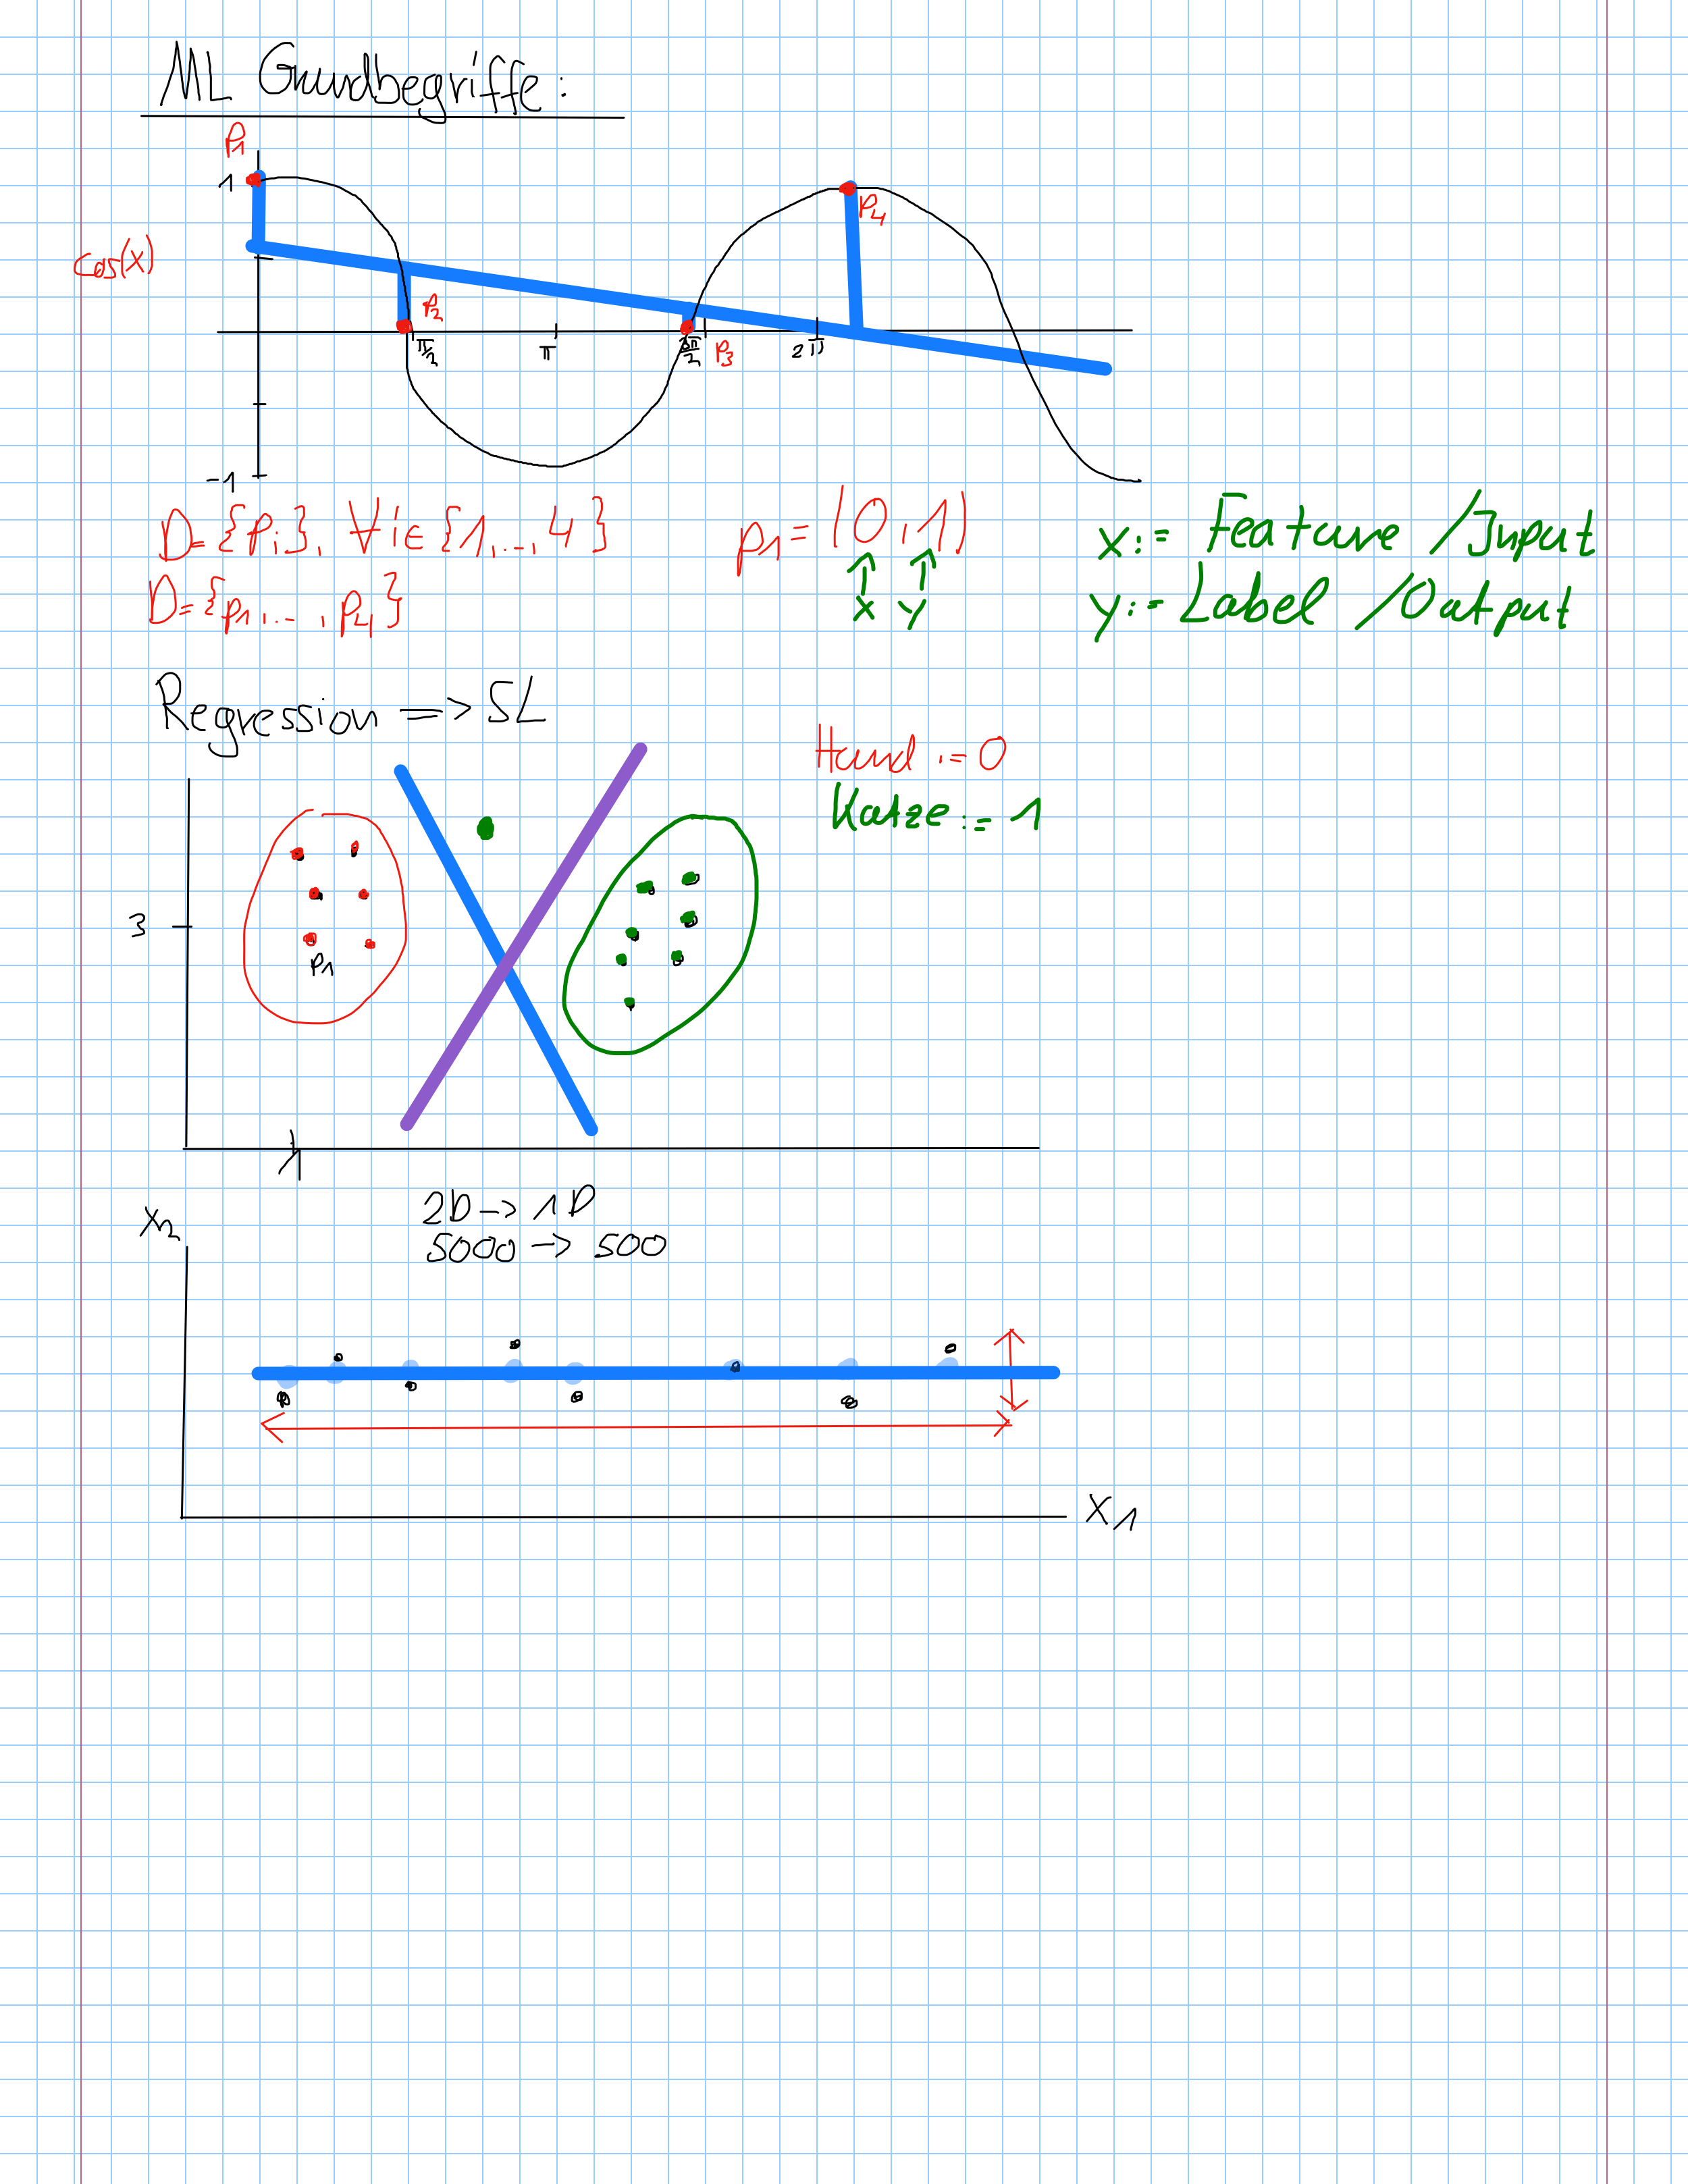 ML Grundbegriffe:
P1
1
cos(x)
P4
P2
π/2
π
3π/2
P3
2π
-1
D={Pi}, ∀i∈{1,..,4}
p1=(0,1)
x:= Feature /Input
D={p1,..,p4}
x y
y:= Label /Output
Regression => SL
Hund := 0
Katze := 1
3
P1
1
2D -> 1D
x2
5000 -> 500
x1